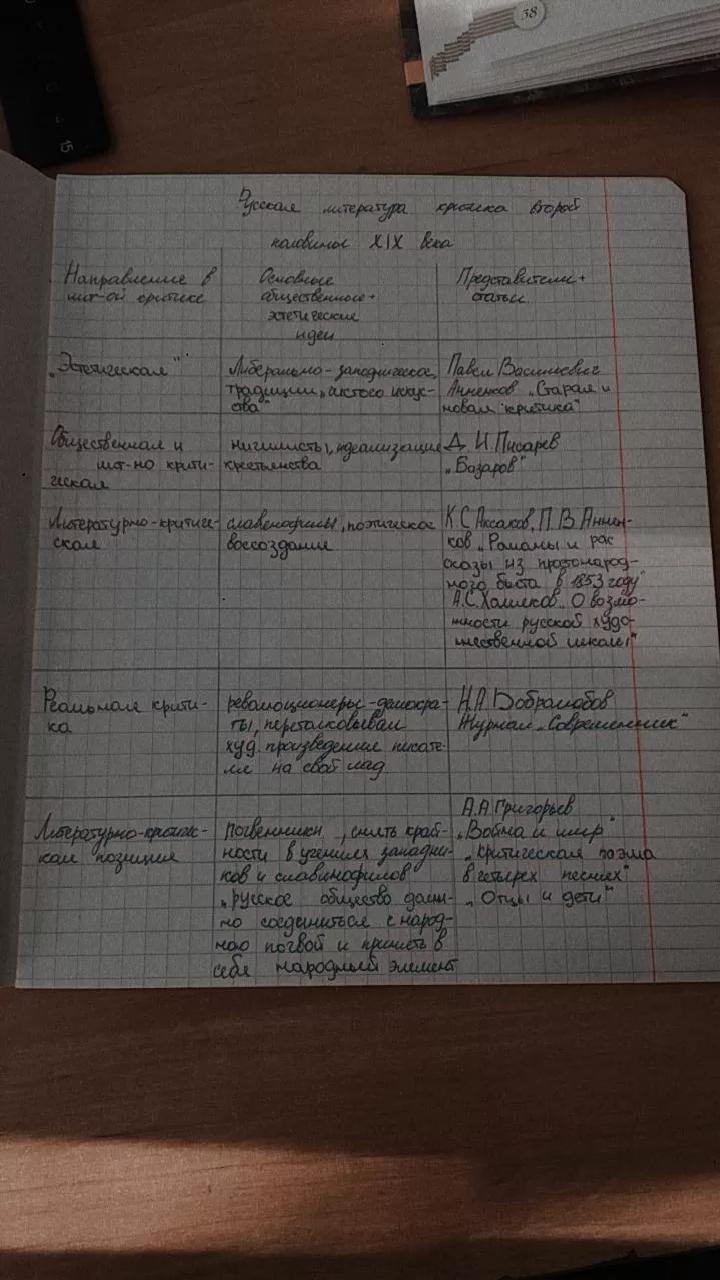 38
15
Русская литература критика второй
половины XIX века
Направление в
лит-ой критике
Основные
общественные +
эстетические
идеи
Представители +
статьи
„Эстетическая"
Либерально-западническое,
традиции „чистого искус-
ства"
Павел Васильевич
Анненков „Старая и
новая критика"
Общественная и
лит-но крити-
ческая
нигилисты, идеализация
крестьянства
Д. И. Писарев
„Базаров"
Литературно-критиче-
ская
славенофилы, поэтическое
воссоздание
К. С. Аксаков, П. В. Аннен-
ков „Романы и рас
сказы из простонарод-
ного быта в 1853 году"
А.С. Хомяков „О возмо-
жности русской худо-
жественной школы"
Реальная крити-
ка
революционеры-демокра-
ты, перетолковывал
худ. произведения писате-
ля на свой лад
Н.А. Добролюбов
Журнал „Современник"
Литературно-критичес-
кая позиция
почвенники, снять край-
ности в учениях западни-
ков и славинофилов
„русское общество долж-
но соединиться с народ-
ною почвой и принять в
себя народный элемент
А.А. Григорьев
„Война и мир"
„Критическая поэма
в четырех песнях"
„Отцы и дети"